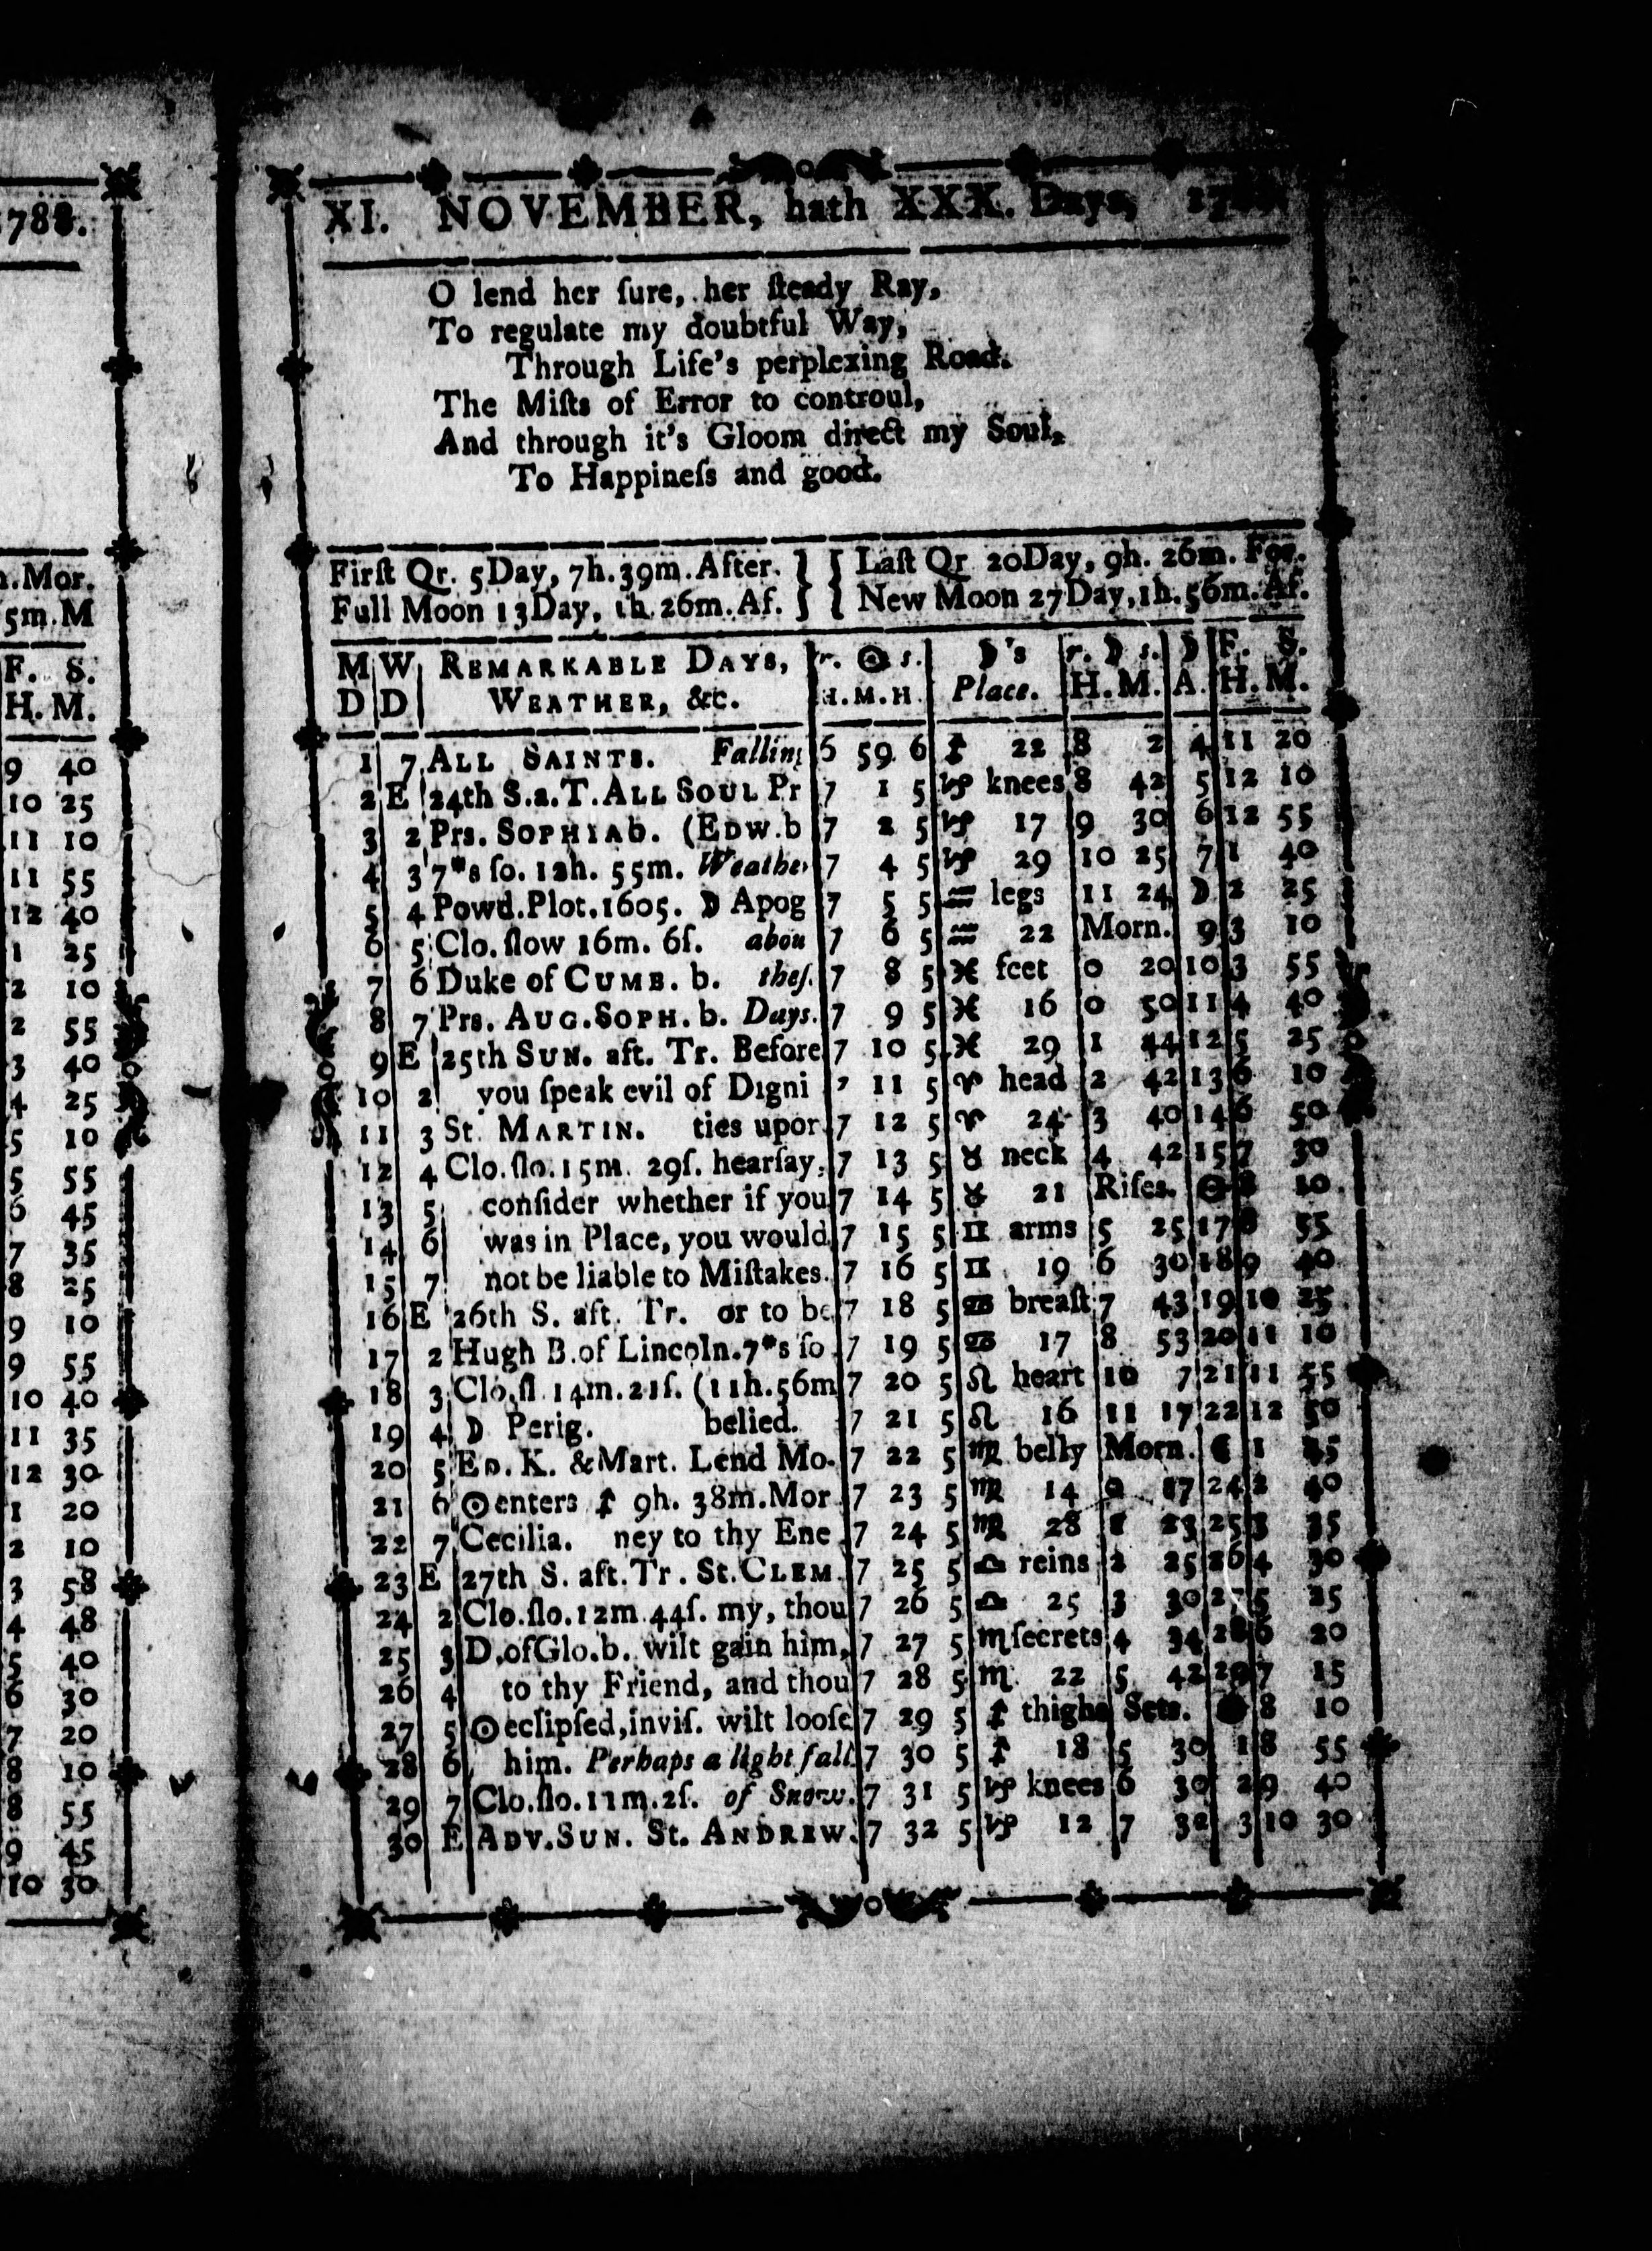 788.
n.Mor.
5m.M
F. S.
H. M.
9 40
10 25
11 10
11 55
12 40
1 25
2 10
2 55
3 40
4 25
5 10
5 55
6 45
7 35
8 25
9 10
9 55
10 40
11 35
12 30
1 20
2 10
3 58
4 48
5 40
6 30
7 20
8 10
8 55
9 45
10 30
XI. NOVEMBER, hath XXX. Days,
O lend her ſure, her ſteady Ray,
To regulate my doubtful Way,
Through Life's perplexing Road.
The Miſts of Error to controul,
And through it's Gloom direct my Soul,
To Happineſs and good.
Firſt Qr. 5Day, 7h.39m.After. } { Laſt Qr 20Day, 9h. 26m. For.
Full Moon 13Day, 1h.26m.Af. } { New Moon 27Day,1h.56m.Af.
M W REMARKABLE DAYS, r. ☉ s. ☽'s r. ☽ s. ☽ F. S.
D D WEATHER, &c. H.M.H. Place. H.M. A. H.M.
1 7 ALL SAINTS. Falling 6 59 6 ♐ 22 8 2 4 11 20
2 E 24th S.a.T.ALL SOUL Pr 7 1 5 ♑ knees 8 42 5 12 10
3 2 Prs. SOPHIAb. (EDW.b 7 2 5 ♑ 17 9 30 6 12 55
4 3 7*s ſo. 12h. 55m. Weather 7 4 5 ♑ 29 10 25 7 1 40
5 4 Powd.Plot.1605. ☽ Apog 7 5 5 ♒ legs 11 24 ☽ 2 25
6 5 Clo. ſlow 16m. 6ſ. abou 7 6 5 ♒ 22 Morn. 9 3 10
7 6 Duke of CUMB. b. theſ. 7 8 5 ♓ feet 0 20 10 3 55
8 7 Prs. AUG.SOPH. b. Days. 7 9 5 ♓ 16 0 50 11 4 40
9 E 25th SUN. aft. Tr. Before 7 10 5 ♓ 29 1 44 12 5 25
10 2 you ſpeak evil of Digni 7 11 5 ♈ head 2 42 13 6 10
11 3 St. MARTIN. ties upon 7 12 5 ♈ 24 3 40 14 6 50
12 4 Clo. ſlo. 15m. 29ſ. hearſay, 7 13 5 ♉ neck 4 42 15 7 30
13 5 conſider whether if you 7 14 5 ♉ 21 Riſes. 8 10
14 6 was in Place, you would 7 15 5 ♊ arms 5 25 17 8 55
15 7 not be liable to Miſtakes. 7 16 5 ♊ 19 6 30 18 9 40
16 E 26th S. aft. Tr. or to be 7 18 5 ♋ breaſt 7 43 19 10 25
17 2 Hugh B.of Lincoln.7*s ſo 7 19 5 ♋ 17 8 53 20 11 10
18 3 Clo.ſl. 14m.21ſ. (11h.56m 7 20 5 ♌ heart 10 7 21 11 55
19 4 ☽ Perig. belied. 7 21 5 ♌ 16 11 17 22 12 50
20 5 ED. K. & Mart. Lend Mo- 7 22 5 ♍ belly Morn. ☾ 1 45
21 6 ☉enters ♐ 9h. 38m.Mor 7 23 5 ♍ 14 0 24 2 40
22 7 Cecilia. ney to thy Ene 7 24 5 ♍ 28 23 25 3 35
23 E 27th S. aft.Tr. St.CLEM. 7 25 5 ♎ reins 2 25 26 4 30
24 2 Clo.ſlo.12m.44ſ. my, thou 7 26 5 ♎ 25 3 30 27 5 25
25 3 D.ofGlo.b. wilt gain him, 7 27 5 ♏ ſecrets 4 34 28 6 20
26 4 to thy Friend, and thou 7 28 5 ♏ 22 5 42 29 7 15
27 5 ☉eclipſed,inviſ. wilt looſe 7 29 5 ♐ thighs Sets. ● 8 10
28 6 him. Perhaps a light fall 7 30 5 ♐ 18 5 30 1 8 55
29 7 Clo.ſlo.11m.2ſ. of Snow. 7 31 5 ♑ knees 6 30 2 9 40
30 E ADV.SUN. St. ANDREW. 7 32 5 ♑ 12 7 32 3 10 30